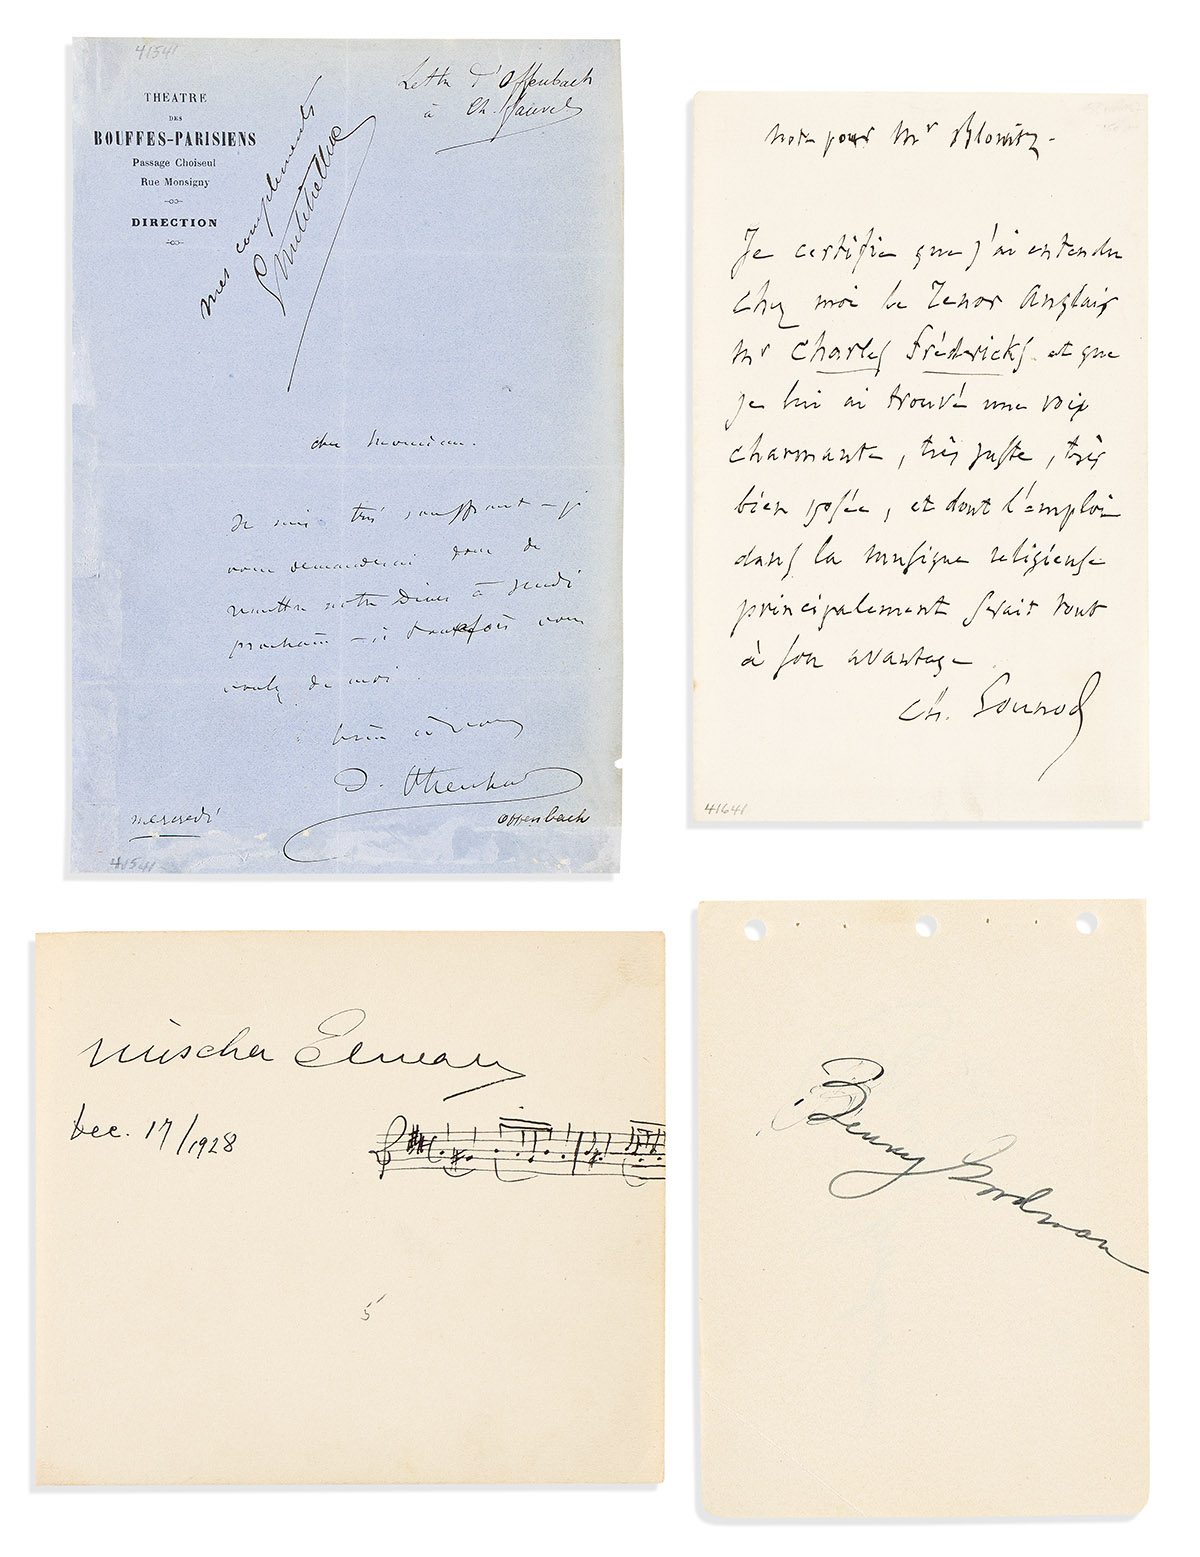 41541
THÉATRE
DES
BOUFFES-PARISIENS
Passage Choiseul
Rue Monsigny
DIRECTION
Lettre d'Offenbach
à Ch.
mes compliments
cher Monsieur.
Je suis très souffrant – je
vous demanderai donc de
remettre notre Diner à jeudi
prochain – si toutefois vous
voulez de moi.
bien à vous
J. Offenbach
mercredi
Offenbach
41541
note pour Mr Blowitz.
Je certifie que j'ai entendu
chez moi le Tenor Anglais
Mr Charles Fréderick et que
je lui ai trouvé une voix
charmante, très juste, très
bien posée, et dont l'emploi
dans la musique religieuse
principalement serait tout
à son avantage
Ch. Gounod
41641
Mischa Elman
Dec. 17/1928
5
Benny Goodman